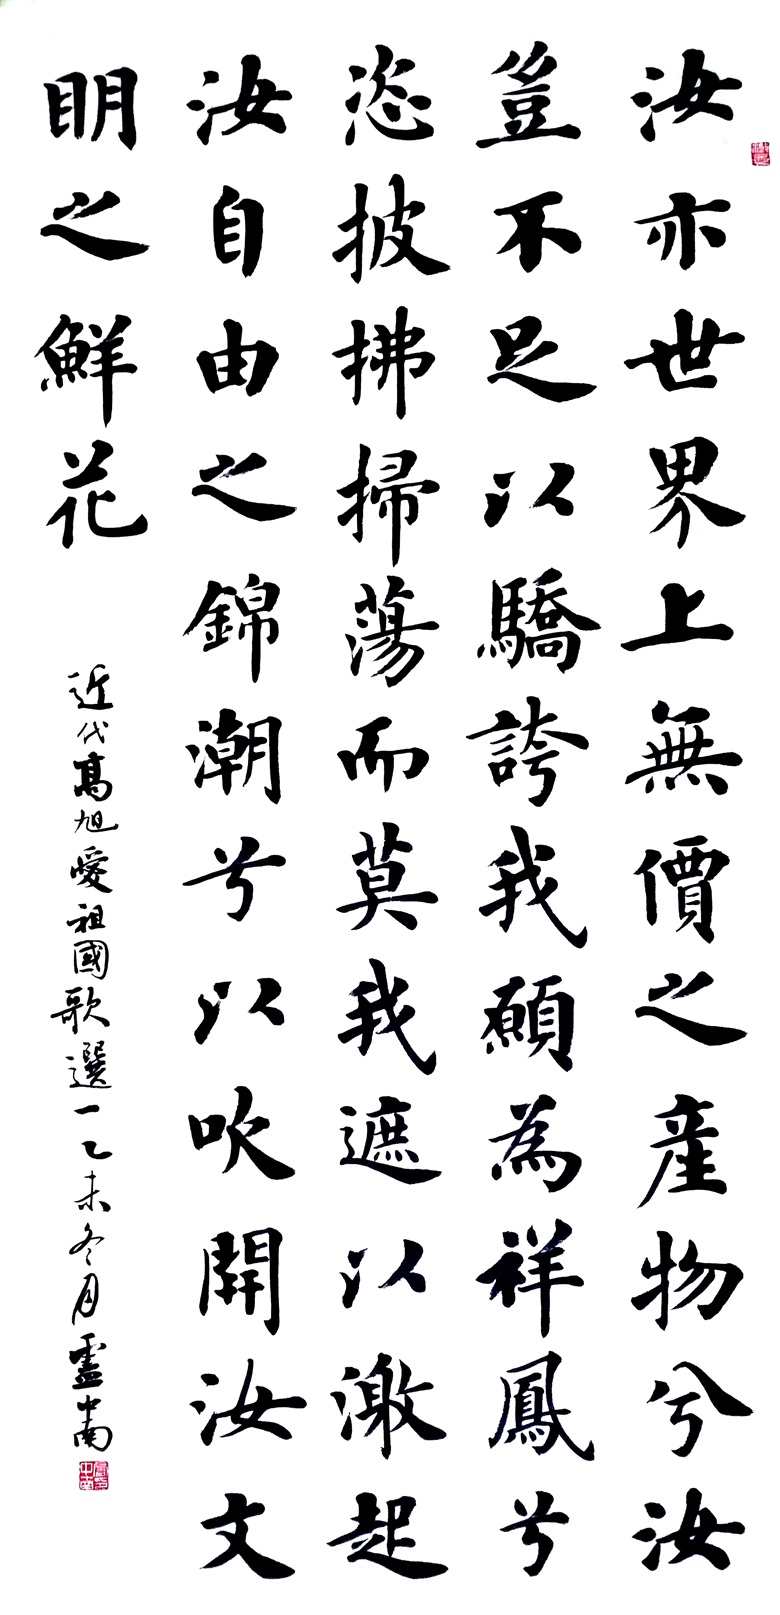 汝亦世界上無價之產物兮汝
豈不足以驕誇我願為祥鳳兮
恣披拂掃蕩而莫我遮以激起
汝自由之錦潮兮以吹開汝文
明之鮮花
近代高旭愛祖國歌選一乙未冬月靈中南